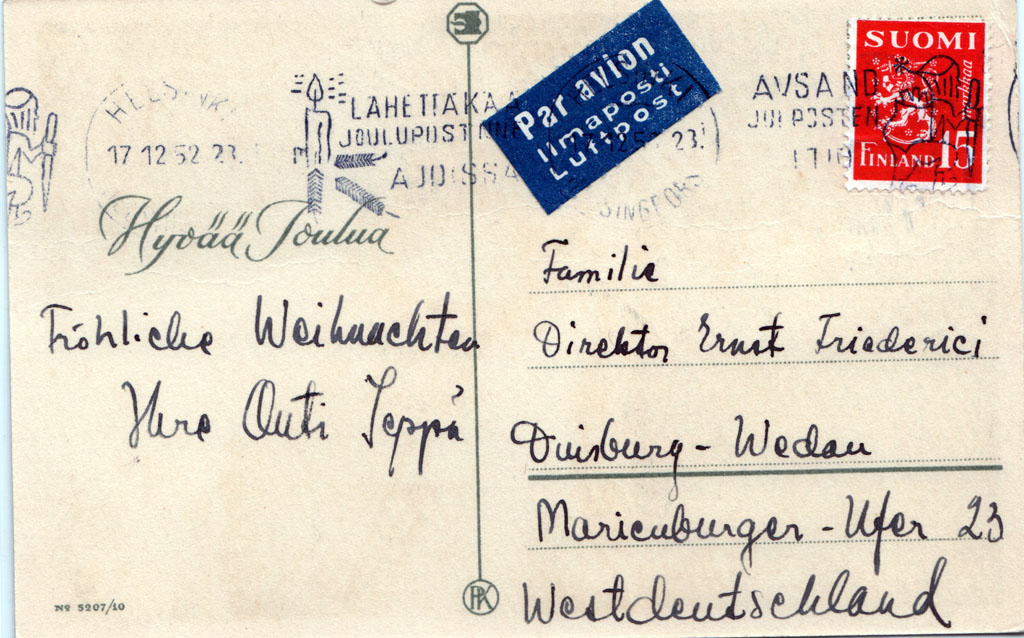 HELSINKI
17.12.52 23.
LÄHETTÄKÄÄ
JOULUPOSTINNE
AJOISSA
Par avion
Ilmaposti
Luftpost
17.12.52 23.
AVSÄND
JULPOSTEN
I TID
SUOMI
markkaa
FINLAND 15
Hyvää Joulua
Fröhliche Weihnachten
Ihre Outi Seppä
Familie
Direktor Ernst Friederici
Duisburg - Wedau
Marienburger - Ufer 23
Westdeutschland
No 5207/10
PK